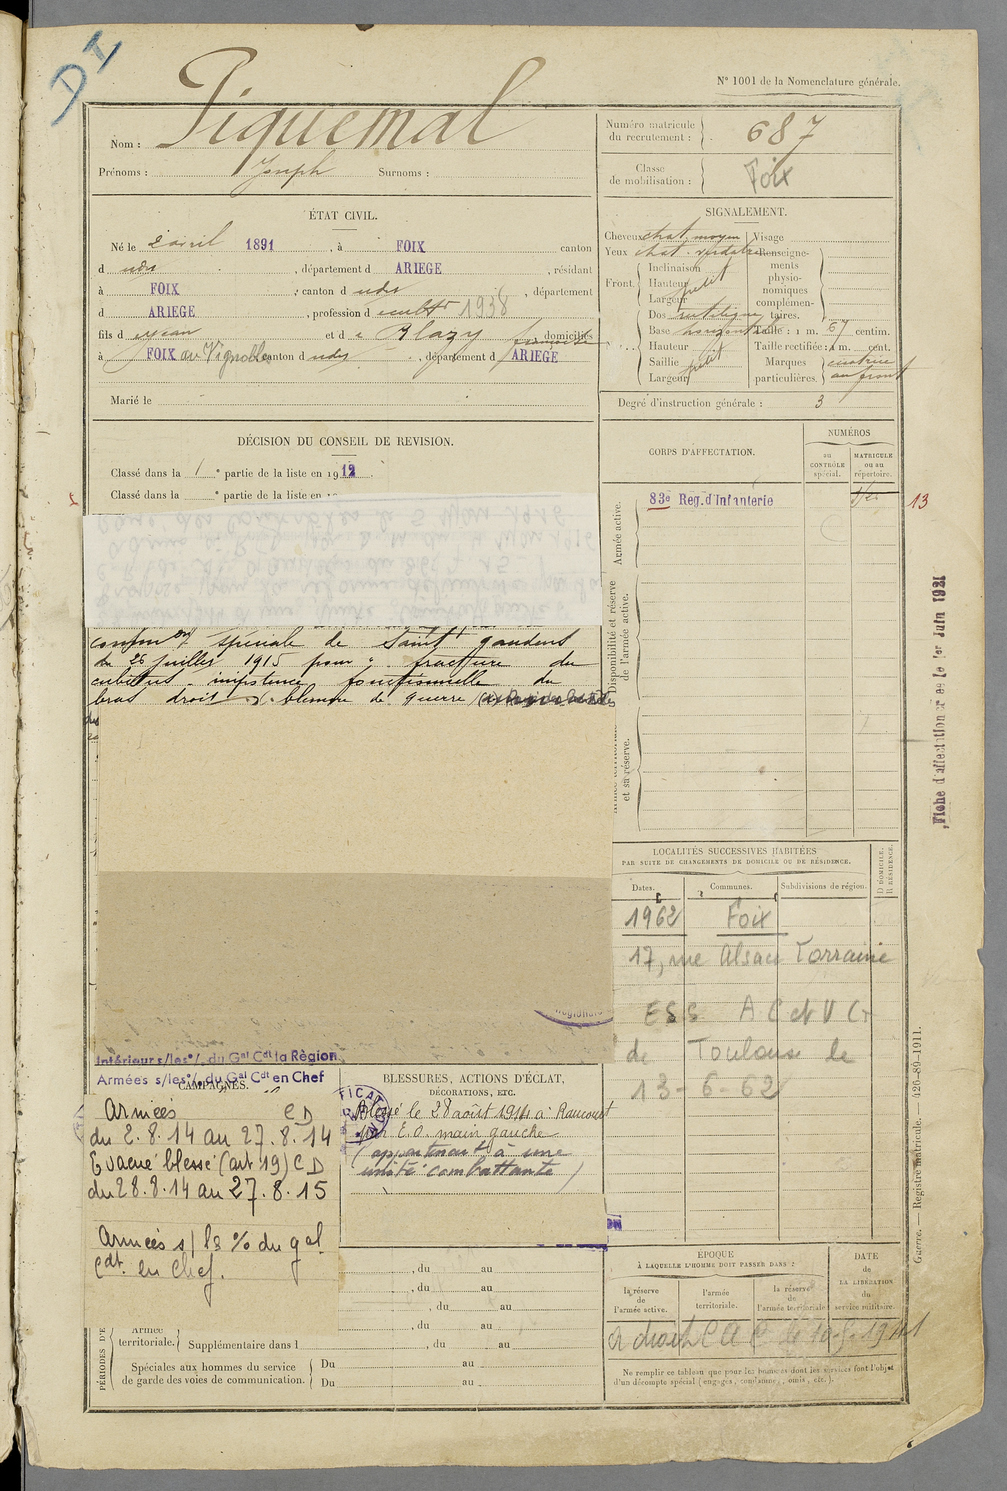 DI
N° 1001 de la Nomenclature générale.
Nom : Piquemal
Prénoms : Joseph Surnoms :
Numéro matricule du recrutement : 687
Classe de mobilisation : Foix
ÉTAT CIVIL.
Né le 2 avril 1891, à FOIX canton
d udt, département d ARIEGE, résidant
à FOIX, canton d udt, département
d ARIEGE, profession d cultr 1938
fils d Jean et d e Blazy françoise domiciliés
à FOIX au Vignoble canton d udt, département d ARIEGE
Marié le
SIGNALEMENT.
Cheveux chat. moyen Visage
Yeux chat. verdâtre Renseignements physionomiques complémentaires.
Front. Inclinaison
Hauteur petit
Largeur
Dos rectiligne
Base horizontale Taille : 1 m. 67 centim.
Hauteur Taille rectifiée : 1 m. cent.
Saillie petit Marques cicatrice
Largeur particulières. au front
Degré d'instruction générale : 3
DÉCISION DU CONSEIL DE REVISION.
Classé dans la 1e partie de la liste en 1912.
Classé dans la e partie de la liste en 19
CORPS D'AFFECTATION.
NUMÉROS
au CONTRÔLE spécial.
MATRICULE ou au répertoire.
Armée active.
83e Reg. d'Infanterie
13
Disponibilité et réserve de l'armée active.
et sa réserve.
Fiche d'affectation créée le 1er Juin 1921
spéciale de Saint gaudens
du 26 juillet 1915 pour : fracture du
cubitus impotence fonctionnelle du
bras droit blessure de guerre
LOCALITÉS SUCCESSIVES HABITÉES
PAR SUITE DE CHANGEMENTS DE DOMICILE OU DE RÉSIDENCE.
Dates. Communes. Subdivisions de région. D DOMICILE. R RÉSIDENCE.
1962 Foix
17, rue Alsace Lorraine
ESS AC et V Gr
de Toulouse le
13-6-62
Intérieur s/les °/. du Gal Cdt la Région
Armées s/les °/. du Gal Cdt en Chef
CAMPAGNES.
Armées CD
du 2.8.14 au 27.8.14
Evacué blessé (art 19) CD
du 28.8.14 au 27.8.15
Armées s/ls % du gal
Cdt en Chef.
BLESSURES, ACTIONS D'ÉCLAT,
DÉCORATIONS, ETC.
Blessé le 28 août 1914 à Raucourt
par E.O. main gauche
(appartenait à une
unité combattante)
, du au
, du au
, du au
, du au
PÉRIODES D'E
Armée territoriale. Supplémentaire dans l , du au
Spéciales aux hommes du service de garde des voies de communication.
Du au
Du au
ÉPOQUE
À LAQUELLE L'HOMME DOIT PASSER DANS :
la réserve de l'armée active.
l'armée territoriale.
la réserve de l'armée territoriale
DATE de LA LIBÉRATION du service militaire.
a droit C A C le 10-5-1941
Ne remplir ce tableau que pour les hommes dont les services font l'objet
d'un décompte spécial (engagés, condamnés, omis, etc.).
Guerre. — Registre matricule. — 426-89-1911.